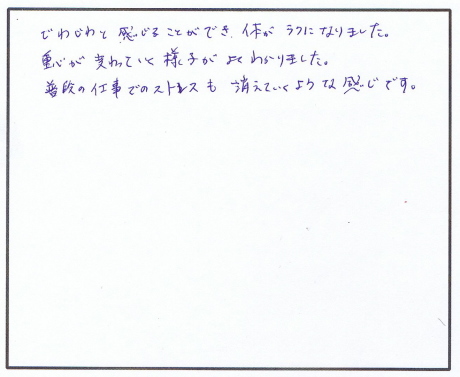 じわじわと感じることができ、体がラクになりました。
重心が変わっていく様子がよくわかりました。
普段の仕事でのストレスも消えていくような感じです。